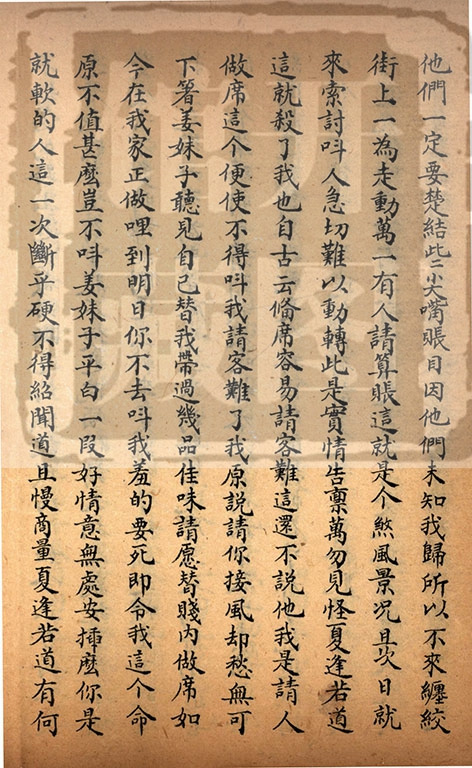 他們一定要楚結此二尖嘴賬目因他們未知我歸所以不來纏絞
街上一為走動萬一有人請算賬這就是个煞風景况且次日就
來索討呌人急切難以動轉此是實情告禀萬勿見怪夏逢若道
這就殺了我也自古云偹席容易請客難這還不說他我是請人
做席這个便使不得呌我請客難了我原説請你接風却愁無可
下箸姜妹子聽見自己替我帶過幾品佳味請愿替賤內做席如
今在我家正做哩到明日你不去呌我羞的要死即令我這个命
原不值甚麽豈不呌姜妹子平白一段好情意無處安揷麽你是
就軟的人這一次斷乎硬不得紹聞道且慢商量夏逢若道有何